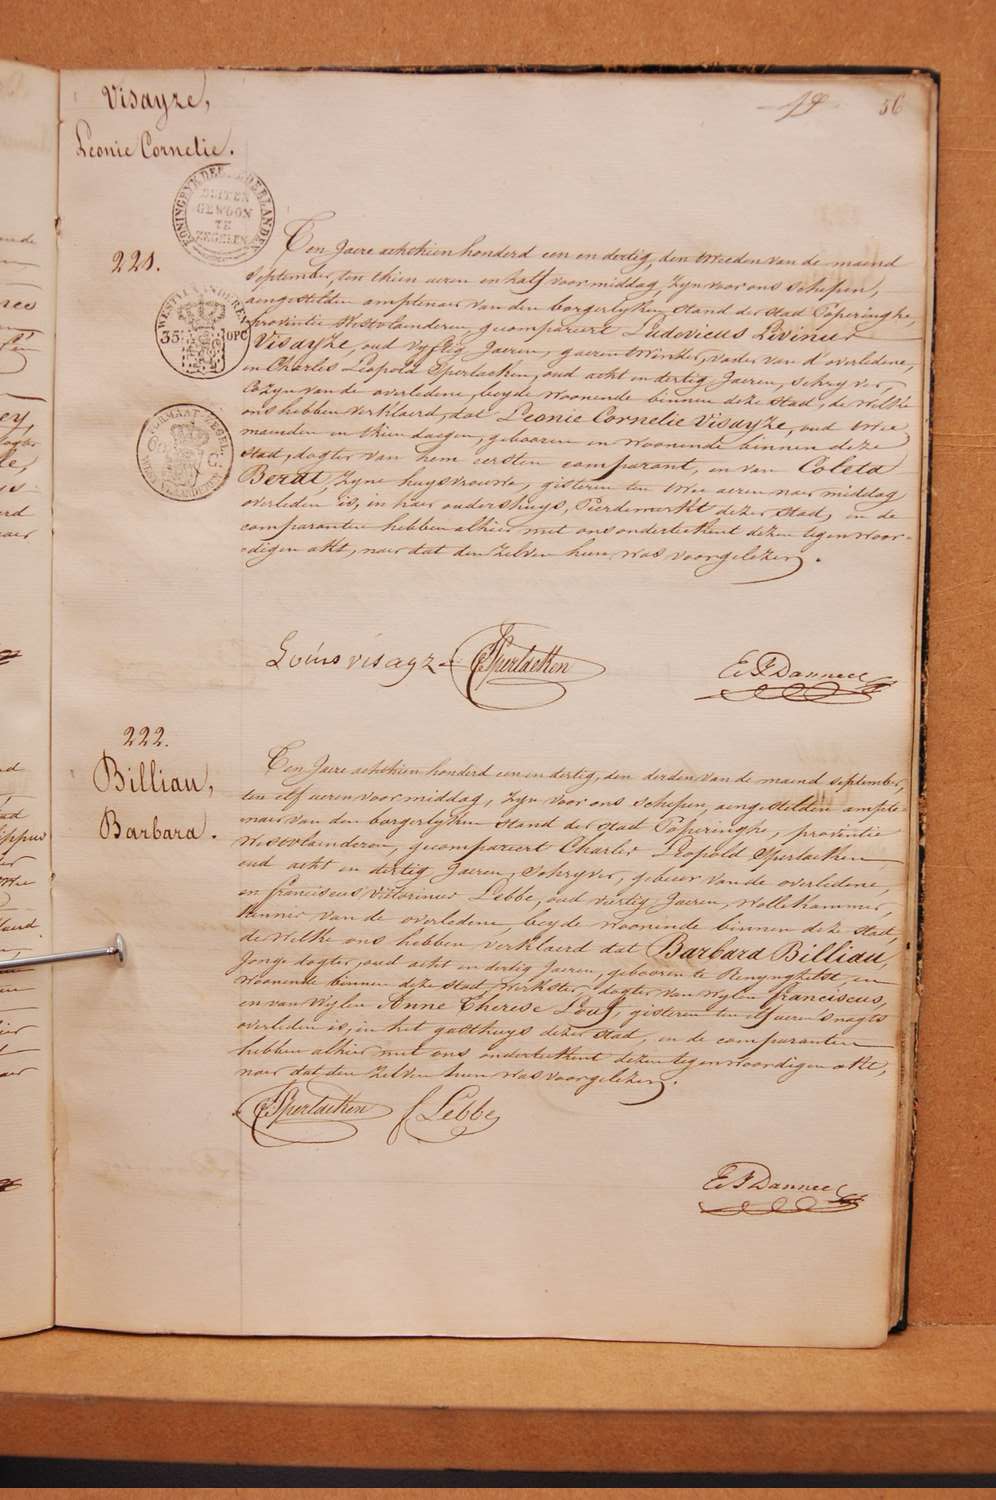 Visayze,
Leonie Cornelie.
49 56
KONINGRYK DER NEDERLANDEN
BUITEN
GEWOON
TE
ZEGELEN
221.
WESTVLAANDEREN
35 OPC
Ten Jaere achthien honderd een en dertig, den tweeden van de maend
September, ten thien ueren en half voormiddag, Zyn voor ons schepen,
aengestelden amptenaer van den borgerlyken stand der stad Poperinghe,
provintie Westvlaenderen, gecompareert Ludovicus Livinus
Visayze, oud vyftig Jaeren, gaerentwinder, vader van d'overledene,
en Charles Leopold Sperlaeken, oud acht en dertig Jaeren, schryver,
Cozyn van de overledene, beyde woonende binnen deze stad, de welke
ons hebben verklaerd, dat Leonie Cornelie Visayze, oud twee
maenden en thien daegen, gebooren en woonende binnen deze
stad, dogter van hem eersten comparant, en van Coleta
Berat, zyne huysvrouwe, gisteren ten twee ueren naer middag
overleden is, in haer oudershuys, Peerdemarkt dezer stad, en de
comparanten hebben alhier met ons onderteekent dezen tegenwoor-
-digen akt, naer dat den zelven hun was voorgelezen.
Louis visayze C L Sperlaeken E. F. Danneel
222.
Billiau,
Barbara.
Ten Jaere achthien honderd een en dertig, den derden van de maend september,
ten elf ueren voormiddag, Zyn voor ons schepen, aengestelden ampte-
naer van den borgerlyken stand der stad Poperinghe, provintie
Westvlaenderen, gecompareert Charles Leopold Sperlaeken,
oud acht en dertig Jaeren, Schryver, gebuer van de overledene,
en franciscus Victorinus Lebbe, oud viertig Jaeren, Wollekammer,
kenner van de overledene, beyde woonende binnen deze stad,
de welke ons hebben verklaerd dat Barbara Billiau,
Jonge dogter, oud acht en dertig Jaeren, gebooren te Renynghelst, en
woonende binnen deze stad, werkster, dogter van wylen franciscus,
en van Wylen Anne Therese Louf, gisteren ten elf ueren 's nagts
overleden is, in het gasthuys dezer stad, en de comparanten
hebben alhier met ons onderteekent dezen tegenwoordigen akt,
naer dat den zelven hun was voorgelezen.
C L Sperlaeken f Lebbe
E. F. Danneel